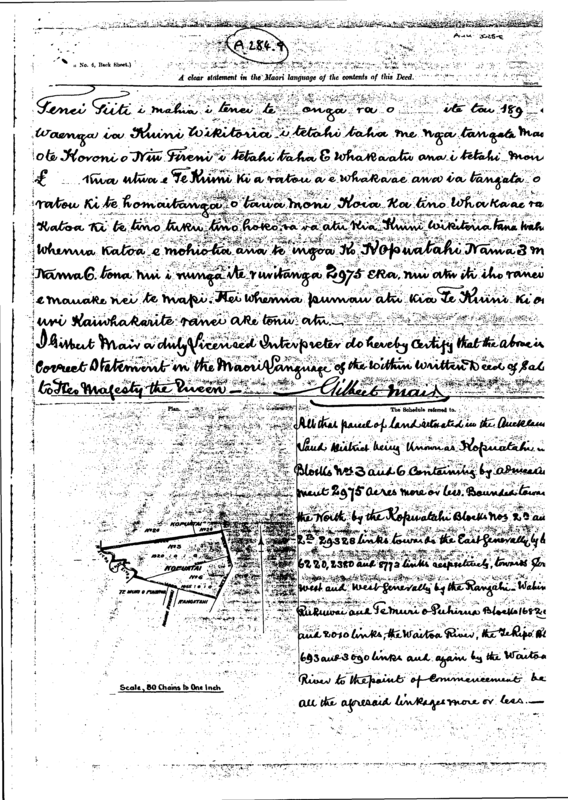 A 284.9
No. 4, Back Sheet.)
A clear statement in the Maori language of the contents of this Deed.
Tenei Tiiti i mahia i tenei te onga ra o ite tau 189
Waenga ia Kuini Wikitoria i tetahi taha me nga tangata Mao
ote Koroni o Niu Tireni i tetahi taha E Whakaatu ana i tetahi mon
£ Inua utua e Te Kuini ki a ratou a e whakaae ana ia tangata o
ratou ki te homaitanga o taua moni Koia Ka tino Whakaae ra
Katoa ki te tino tuku tino hoko rawa atu kia Kuini Wikitoria
Whenua katoa e mohiotia ana te ingoa Ko Kopuatahi Nama 3 m
Nama 6. tona nui i runga i te ruritanga 2975 Eka, nui atu iti iho ranei
e mau ake nei te mapi. Hei whenua pumau atu kia Te Kuini ki on
uri Kaiwhakarite ranei ake tonu atu.
I Gilbert Mair a duly Licensed Interpreter do hereby Certify that the above is
Correct Statement in the Maori Language of the Within Written Deed of Sal
to Her Majesty the Queen —
Gilbert Mair
Plan.
KOPUATAI
No 3
KOPUATAI
No 6
RANGATAHI
Scale, 80 Chains to One Inch
The Schedule referred to.
All that parcel of land situated in the Aucklan
Land District being Known as Kopuatahi
Blocks Nos 3 and 6 Containing by admeasure
ment 2975 acres more or less. Bounded towar
the North by the Kopuatahi Blocks Nos 2B an
29328 links towards the East Generally by
6220, 2380 and 8773 links respectively, towards
West and West Generally by the
and Te Muri o Puhirua Blocks
and 2010 links, the Waitoa River, the
693 and 3090 links and again by the Waitoa
River to the point of Commencement be
all the aforesaid linkages more or less.